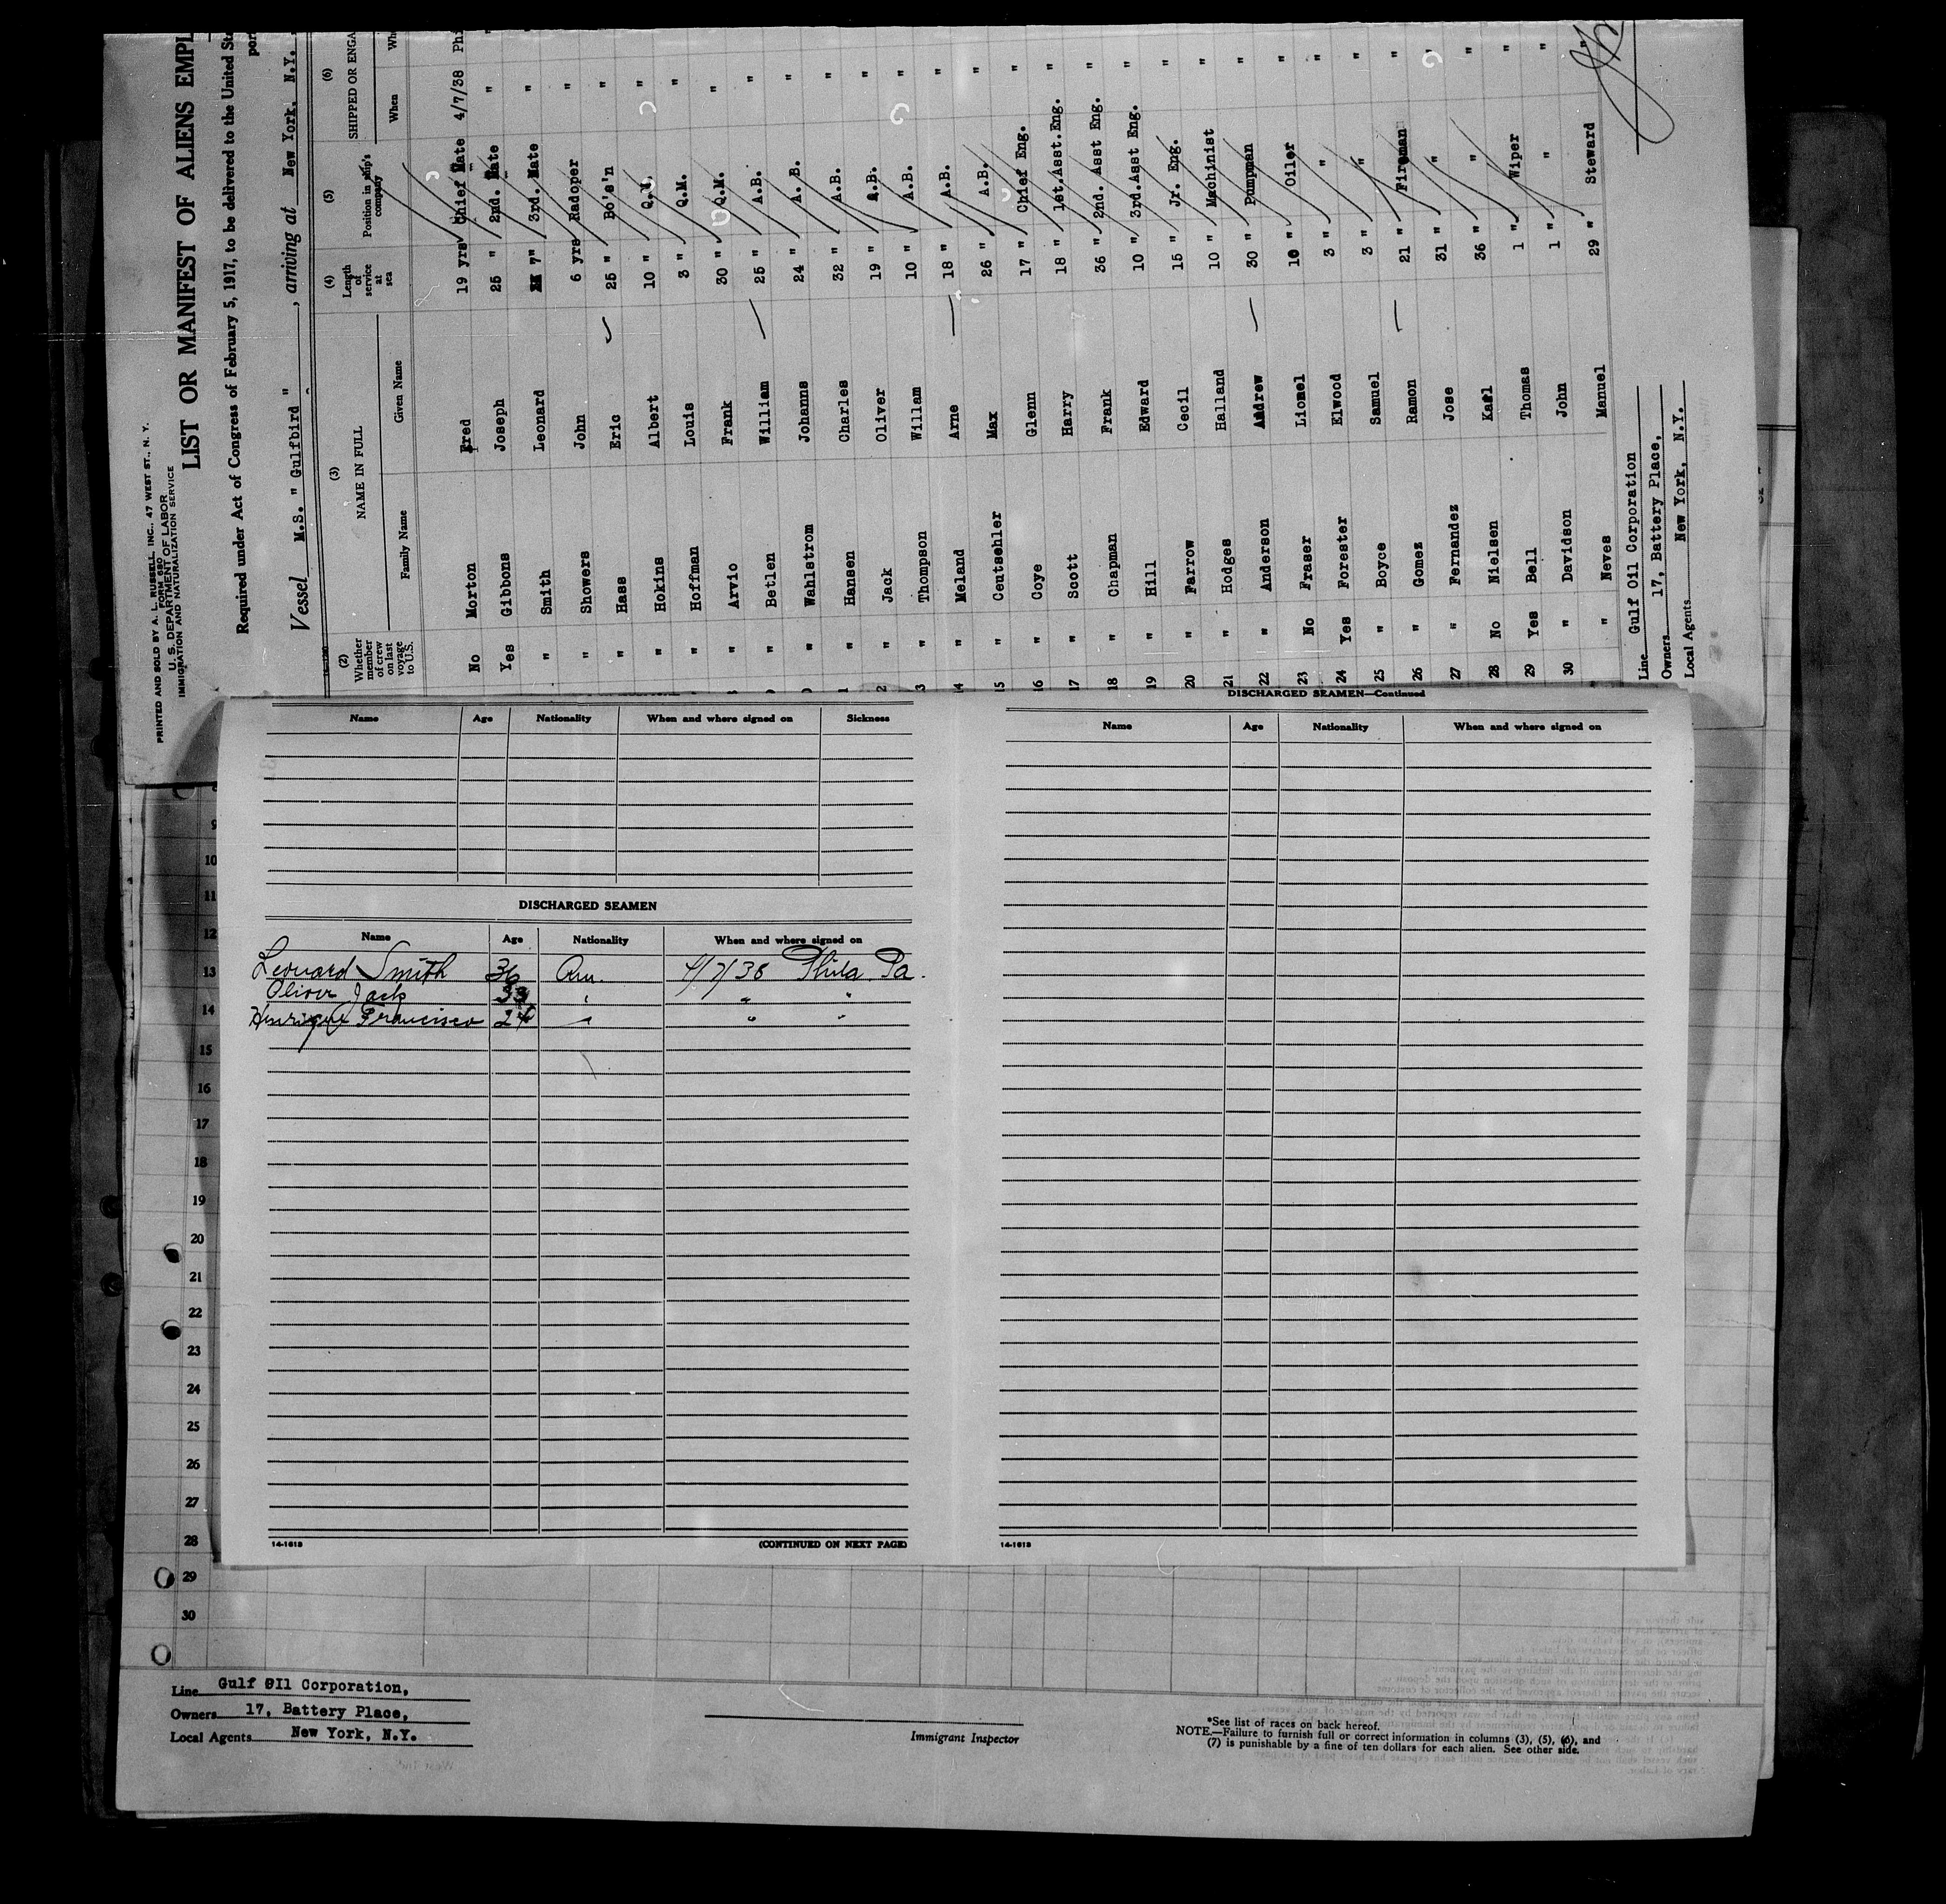 PRINTED AND SOLD BY A. L. RUSSELL, INC., 47 WEST ST., N. Y.
FORM 680
U. S. DEPARTMENT OF LABOR
IMMIGRATION AND NATURALIZATION SERVICE
LIST OR MANIFEST OF ALIENS EMPL
Required under Act of Congress of February 5, 1917, to be delivered to the United St
por
Vessel M.S. " Gulfbird " , arriving at New York, N.Y.
(2) (3) (4) (5) (6)
Whether member of crew on last voyage to U.S. NAME IN FULL Length of service at sea Position in ship's company SHIPPED OR ENGA
Family Name Given Name When Wh
No Morton Fred 19 yrs Chief Mate 4/7/38 Phi
Yes Gibbons Joseph 25 " 2nd. Mate " "
" Smith Leonard 7" 3rd. Mate "
" Showers John 6 yrs Radoper "
" Hass Eric 25 " Bo's'n "
" Hokins Albert 10 " Q.M. "
" Hoffman Louis 3 " Q.M. "
" Arvio Frank 30 " Q.M. "
" Belen William 25 " A.B. "
" Wahlstrom Johanns 24 " A. B. "
1 " Hansen Charles 32 " A.B. "
2 " Jack Oliver 19 " A.B. "
3 " Thompson Willam 10 " A.B. "
14 " Meland Arne 18 " A.B. "
15 " Ceutsehler Max 26 " A.B. "
16 " Coye Glenn 17 " Chief Eng. "
17 " Scott Harry 18 " 1st.Asst.Eng. "
18 " Chapman Frank 36 " 2nd. Asst Eng. "
19 " Hill Edward 10 " 3rd.Asst Eng. "
20 " Farrow Cecil 15 " Jr. Eng. "
21 " Hodges Halland 10 " Machinist "
22 " Anderson Andrew 30 " Pumpman "
23 No Fraser Lionel 10 " Oiler "
24 Yes Forester Elwood 3 " " "
25 " Boyce Samuel 3 " " "
26 " Gomez Ramon 21 " Fireman "
27 " Fernandez Jose 31 " " "
28 No Nielsen Karl 36 " " "
29 Yes Bell Thomas 1 " Wiper "
30 " Davidson John 1 " " "
" Neves Manuel 29 " Steward "
Line Gulf Oil Corporation
Owners 17, Battery Place,
Local Agents New York, N.Y.
Name Age Nationality When and where signed on Sickness
DISCHARGED SEAMEN
Name Age Nationality When and where signed on
Leonard Smith 36 Am. 4/7/38 Phila Pa.
Oliver Jack " " "
Henrique Francisco 24 " " "
14-1613
(CONTINUED ON NEXT PAGE)
DISCHARGED SEAMEN—Continued
Name Age Nationality When and where signed on
14-1613
9
10
11
12
13
14
15
16
17
18
19
20
21
22
23
24
25
26
27
28
29
30
Line Gulf OIl Corporation,
Owners 17, Battery Place,
Local Agents New York, N.Y.
Immigrant Inspector
*See list of races on back hereof.
NOTE.—Failure to furnish full or correct information in columns (3), (5), (6), and
(7) is punishable by a fine of ten dollars for each alien. See other side.